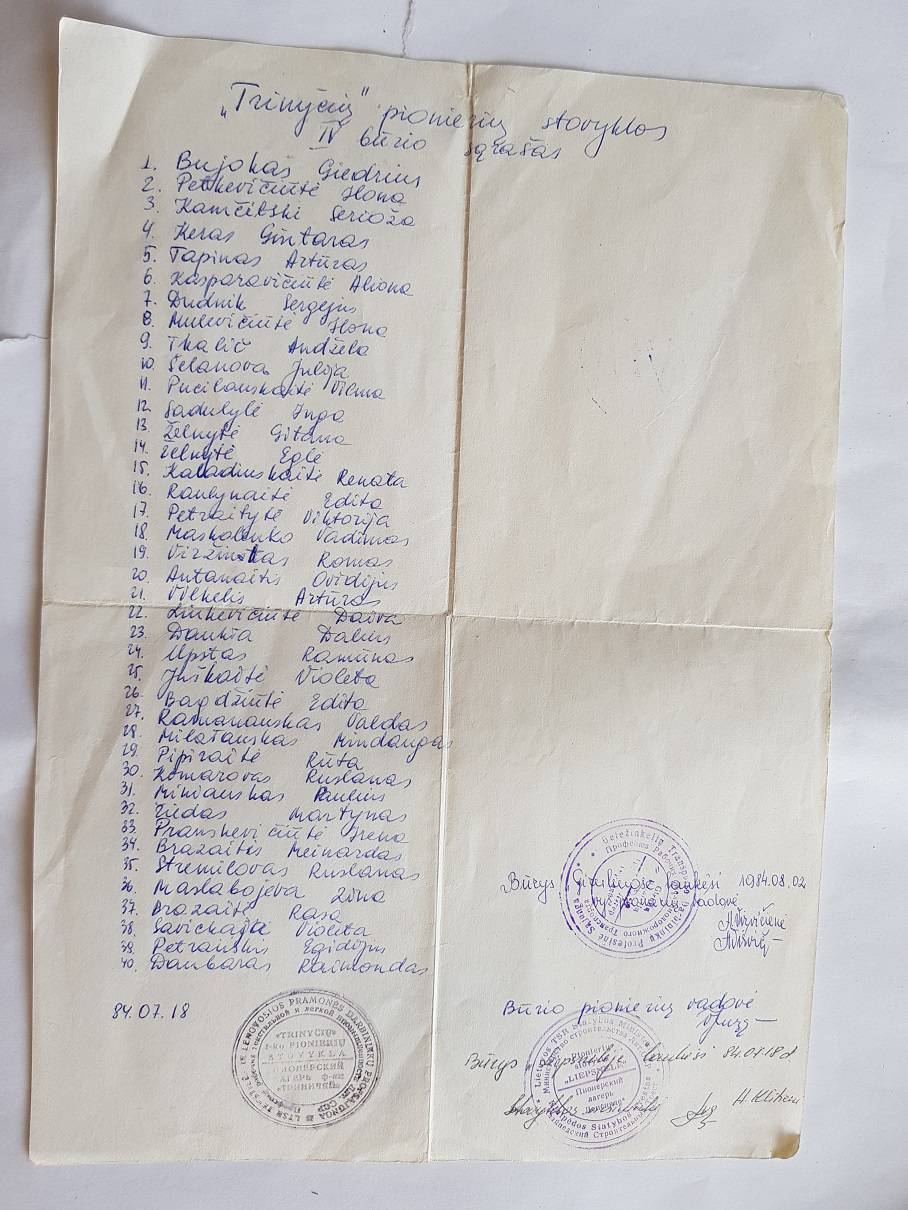 „Trinyčių" pionierių stovyklos
IV būrio sąrašas
1. Bujokas Giedrius
2. Petkevičiūtė Ilona
3. Kamčibski Serioža
4. Keras Gintaras
5. Tapinas Artūras
6. Kasparavičiūtė Aliona
7. Dudnik Sergejus
8. Mulevičiūtė Ilona
9. Tkalič Andžela
10. Šelanova Julija
11. Pucilauskaitė Vilma
12. Sadulylė Inga
13. Želnytė Gitana
14. Želnytė Eglė
15. Kaladinskaitė Renata
16. Raulynaitė Edita
17. Petraitytė Viktorija
18. Maskolenko Vadimas
19. Viržintas Romas
20. Antanaitis Ovidijus
21. Vilkelis Artūras
22. Linkevičiūtė Daiva
23. Daukša Dalius
24. Upstas Ramūnas
25. Juškaitė Violeta
26. Bagdžiūtė Edita
27. Ramanauskas Valdas
28. Milašauskas Mindaugas
29. Pipiraitė Rūta
30. Komarovas Ruslanas
31. Mikiauskas Paulius
32. Žiedas Martynas
33. Pranskevičiūtė Irena
34. Brazaitis Meinardas
35. Stremilovas Ruslanas
36. Maslabojeva Zina
37. Brazaitė Rasa
38. Savickaitė Violeta
39. Petrauskis Egidijus
40. Daubaras Raimondas
84.07.18
LENGVOSIOS PRAMONĖS DARBININKŲ PROFSĄJUNGA
LTSR
«TRINYČIŲ»
f-ko PIONIERIŲ
STOVYKLA
ПИОНЕРСКИЙ
АГЕРЬ Ф-КИ
«ТРИНИЧЯЙ»
Geležinkelių Transporto Darbininkų Profesinė Sąjunga
"Būrys Giruliuose lankėsi 1984.08.02
vyr. pionierių vadovė
Būrio pionierių vadovė
Lietuvos TSR Statybos
Pionierių
stovykla
"LIEPSNELĖ"
Пионерский
лагерь
Klaipėdos Statybos
Būrys „Liepsnelėje" lankėsi 84.07.18d
Stovyklos